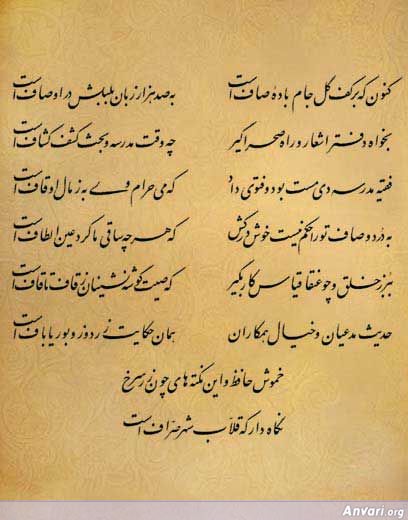 کنون که بر کف گل جام باده صاف است به صد هزار زبان بلبلش در اوصاف است
بخواه دفتر اشعار و راه صحرا گیر چه وقت مدرسه و بحث کشف کشاف است
فقیه مدرسه دی مست بود و فتوی داد که می حرام ولی به ز مال اوقاف است
به درد و صاف تو را حکم نیست خوش درکش که هر چه ساقی ما کرد عین الطاف است
ببر ز خلق و چو عنقا قیاس کار بگیر که صیت گوشه نشینان ز قاف تا قاف است
حدیث مدعیان و خیال همکاران همان حکایت زردوز و بوریاباف است
خموش حافظ و این نکته های چون زر سرخ
نگاه دار که قلاب شهر صراف است
Anvari.org